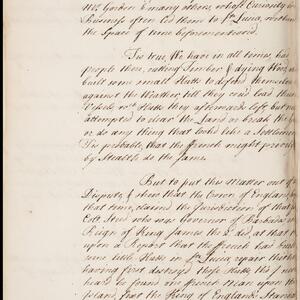 Mr. Gordon & many others, whose Curiosity or
Business often led them to St. Lucia, within
the Space of time beforementioned.
Tis true, We have in all times had
people there, cutting Timber & dying Wood, who
built some small Hutts to defend themselves
against the Weather, till they cou'd load their
Vessels, wch. Hutts they afterwards left, but never
attempted to clear the Land or break the Ground
or do any thing that look'd like a Settlement
Tis probable, that the french might privately
by Stealth do the same.
But to put this Matter out of
Dispute, & shew that the Crown of England, by
that time, claimed the Jurisdiction of that
Coll. Sted who was Governor of Barbados in
Reign of King James the 2d. did, at that
upon a Report that the french had built
some little Hutts in St. Lucia, repair thither
having first destroyed those Hutts, the
heard be found one french Man upon the
Island, fixt the King of England's Standard